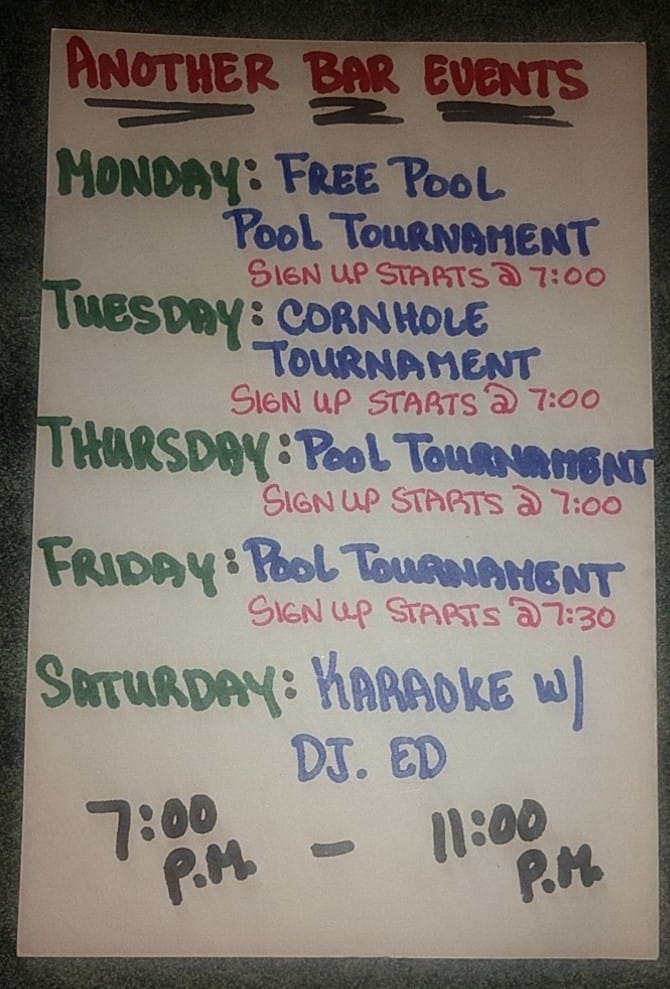 ANOTHER BAR EVENTS
MONDAY: FREE POOL
POOL TOURNAMENT
SIGN UP STARTS @ 7:00
TUESDAY: CORNHOLE
TOURNAMENT
SIGN UP STARTS @ 7:00
THURSDAY: POOL TOURNAMENT
SIGN UP STARTS @ 7:00
FRIDAY: POOL TOURNAMENT
SIGN UP STARTS @ 7:30
SATURDAY: KARAOKE W/
DJ. ED
7:00 P.M. - 11:00 P.M.